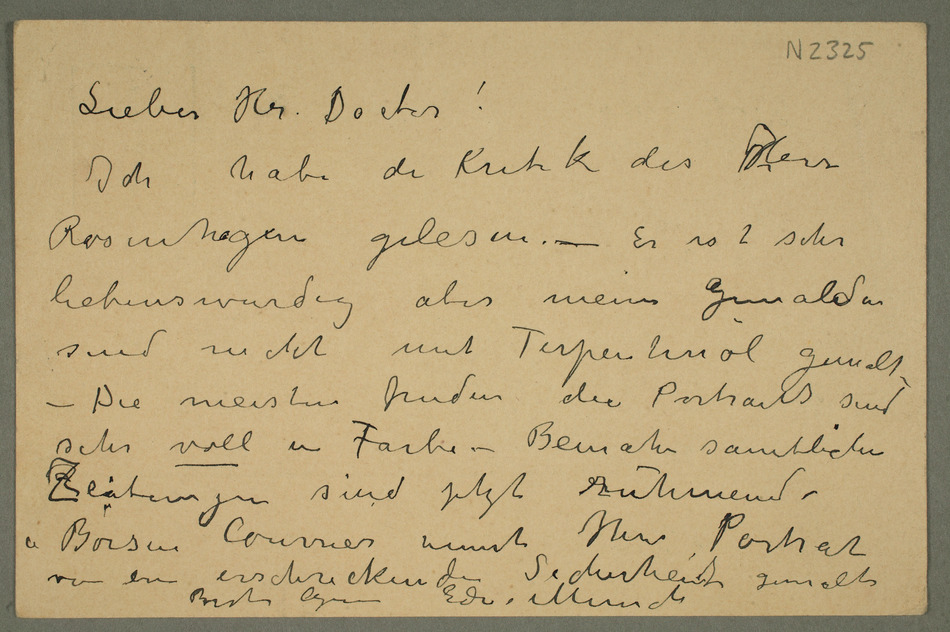 N 2325
Lieber Hr. Doctor!
Ich habe di Kritik des Herr
Rosenhagen gelesen. — Er ist sehr
liebenswurdig aber meine Gemalder
sind nicht mit Terpentinöl gemalt
— Die meisten finden die Portraits sind
sehr voll in Farbe – Beinahe samtliche
Zeitungen sind jetzt rühmend –
Börsen Courrier nennt Ihre Portrat
von ein erschreckenden Sicherheit gemalt
Beste Edv. Munch